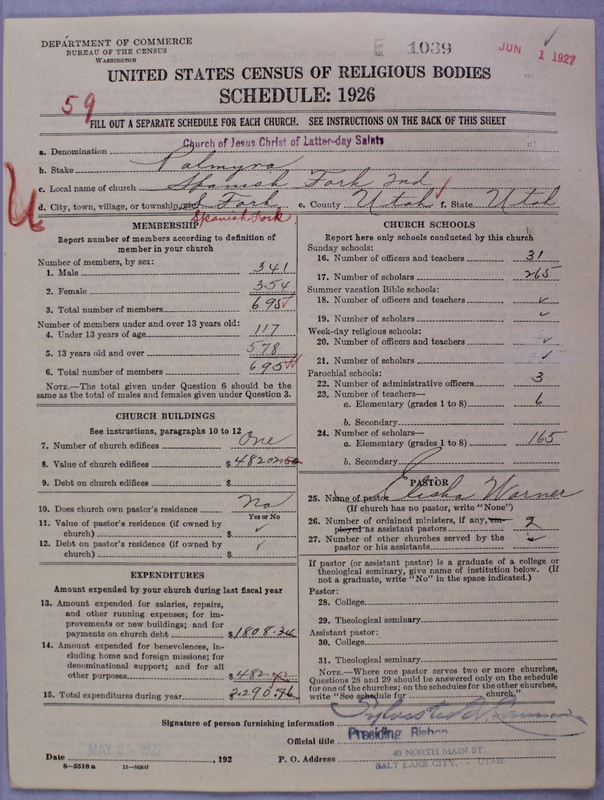 DEPARTMENT OF COMMERCE
BUREAU OF THE CENSUS
WASHINGTON
1039
JUN 1 1927
UNITED STATES CENSUS OF RELIGIOUS BODIES
SCHEDULE: 1926
59
FILL OUT A SEPARATE SCHEDULE FOR EACH CHURCH. SEE INSTRUCTIONS ON THE BACK OF THIS SHEET
a. Denomination Church of Jesus Christ of Latter-day Saints
b. Stake Palmyra
c. Local name of church Spanish Fork 2nd
d. City, town, village, or township, etc. S Fork e. County Utah f. State Utah
Spanish Fork
MEMBERSHIP
Report number of members according to definition of
member in your church
Number of members, by sex:
1. Male 341
2. Female 354
3. Total number of members 695
Number of members under and over 13 years old:
4. Under 13 years of age 117
5. 13 years old and over 578
6. Total number of members 695
NOTE.—The total given under Question 6 should be the
same as the total of males and females given under Question 3.
CHURCH BUILDINGS
See instructions, paragraphs 10 to 12
7. Number of church edifices One
8. Value of church edifices $
9. Debt on church edifices $
10. Does church own pastor's residence No
Yes or No
11. Value of pastor's residence (if owned by
church) $ ✓
12. Debt on pastor's residence (if owned by
church) $ ✓
EXPENDITURES
Amount expended by your church during last fiscal year
13. Amount expended for salaries, repairs,
and other running expenses; for im-
provements or new buildings; and for
payments on church debt $1808.34
14. Amount expended for benevolences, in-
cluding home and foreign missions; for
denominational support; and for all
other purposes $482.42
15. Total expenditures during year 2290.76
CHURCH SCHOOLS
Report here only schools conducted by this church
Sunday schools:
16. Number of officers and teachers 31
17. Number of scholars 265
Summer vacation Bible schools:
18. Number of officers and teachers ✓
19. Number of scholars ✓
Week-day religious schools:
20. Number of officers and teachers ✓
21. Number of scholars ✓
Parochial schools:
22. Number of administrative officers 3
23. Number of teachers—
a. Elementary (grades 1 to 8) 6
b. Secondary
24. Number of scholars—
a. Elementary (grades 1 to 8) 165
b. Secondary
PASTOR
25. Name of pastor Elisha Warner
(If church has no pastor, write "None")
26. Number of ordained ministers, if any, em-
ployed as assistant pastors 2
27. Number of other churches served by the
pastor or his assistants ✓
If pastor (or assistant pastor) is a graduate of a college or
theological seminary, give name of institution below. (If
not a graduate, write "No" in the space indicated.)
Pastor:
28. College
29. Theological seminary
Assistant pastor:
30. College
31. Theological seminary
NOTE.—Where one pastor serves two or more churches,
Questions 28 and 29 should be answered only on the schedule
for one of the churches; on the schedules for the other churches,
write "See schedule for church."
Signature of person furnishing information
Official title Presiding Bishop
Date MAY 25 1927, 192 P. O. Address 40 NORTH MAIN ST.
SALT LAKE CITY, - UTAH.
8—5518 a